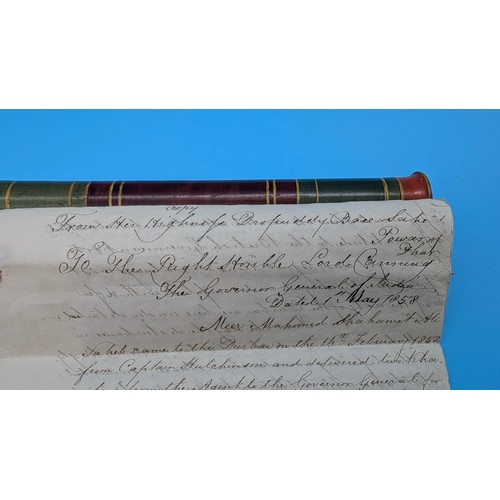 Copy
From Her Highness Dropuddy Baee Sahe
Powar of
Dhar
To The Right Honble Lord Canning
The Governor General of India
Dated 1st May 1858
Meer Mahomed Shahamet Ali
Saheb came to the Durbar on the 14th February 1858
from Captain Hutchinson and delivered two Kha
from the Agent to the Governor General for